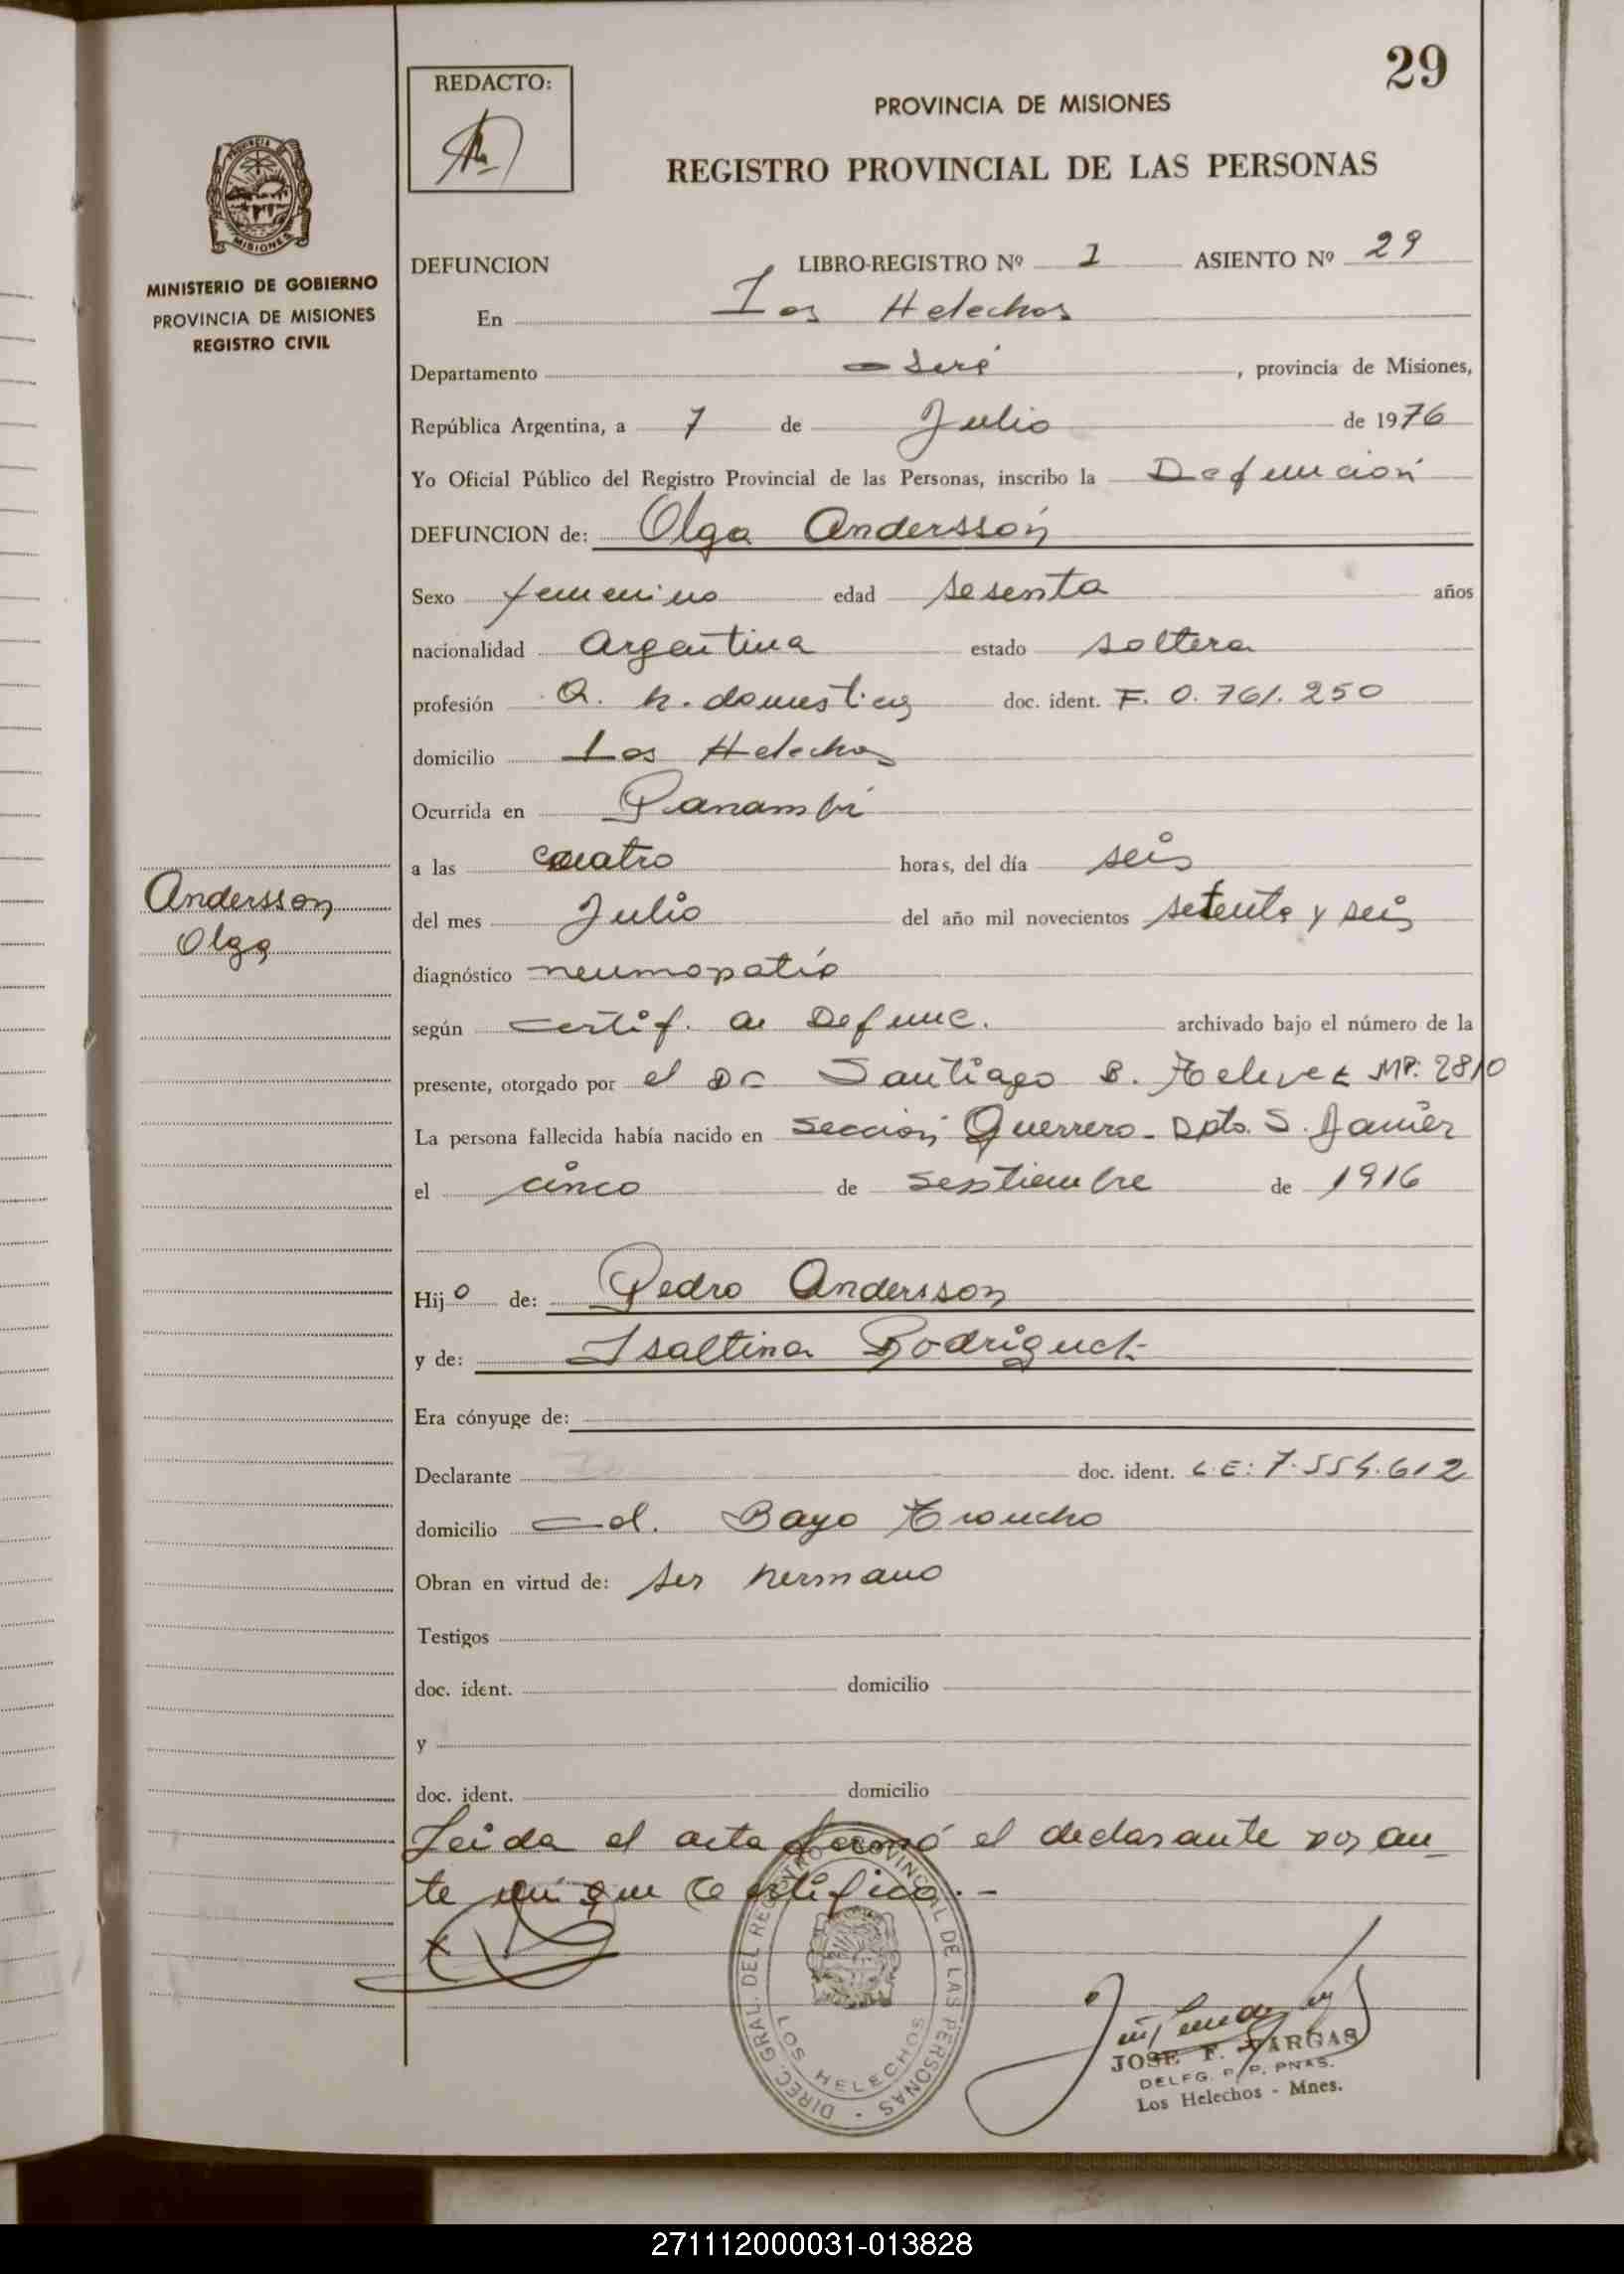 29
REDACTO:
PROVINCIA DE MISIONES
REGISTRO PROVINCIAL DE LAS PERSONAS
PROVINCIA DE
MISIONES
MINISTERIO DE GOBIERNO
PROVINCIA DE MISIONES
REGISTRO CIVIL
DEFUNCION LIBRO-REGISTRO Nº 1 ASIENTO Nº 29
En Los Helechos
Departamento Oberá, provincia de Misiones,
República Argentina, a 7 de Julio de 1976
Yo Oficial Público del Registro Provincial de las Personas, inscribo la Defunción
DEFUNCION de: Olga Andersson
Sexo femenino edad sesenta años
nacionalidad Argentina estado soltera
profesión Q. h. domesticos doc. ident. F. 0.761.250
domicilio Los Helechos
Ocurrida en Panambí
a las cuatro horas, del día seis
del mes Julio del año mil novecientos setenta y seis
diagnóstico neumopatía
según certif. de Defunc. archivado bajo el número de la
presente, otorgado por el Dr Santiago B. MP. 2810
La persona fallecida había nacido en Sección Guerrero - Dpto. S. Javier
el cinco de septiembre de 1916
Andersson
Olga
Hijo de: Pedro Andersson
y de: Isaltina Rodriguez
Era cónyuge de:
Declarante doc. ident. L.E: 7.554.612
domicilio Col. Bayo Troncho
Obran en virtud de: ser hermano
Testigos
doc. ident. domicilio
y
doc. ident. domicilio
Leida el acta firmó el declarante por an-
te mi que certifico.-
DIREC. GRAL. DEL REGISTRO PROVINCIAL DE LAS PERSONAS -
LOS HELECHOS
JOSE F. VARGAS
DELEG. R. P. PNAS.
Los Helechos - Mnes.
271112000031-013828